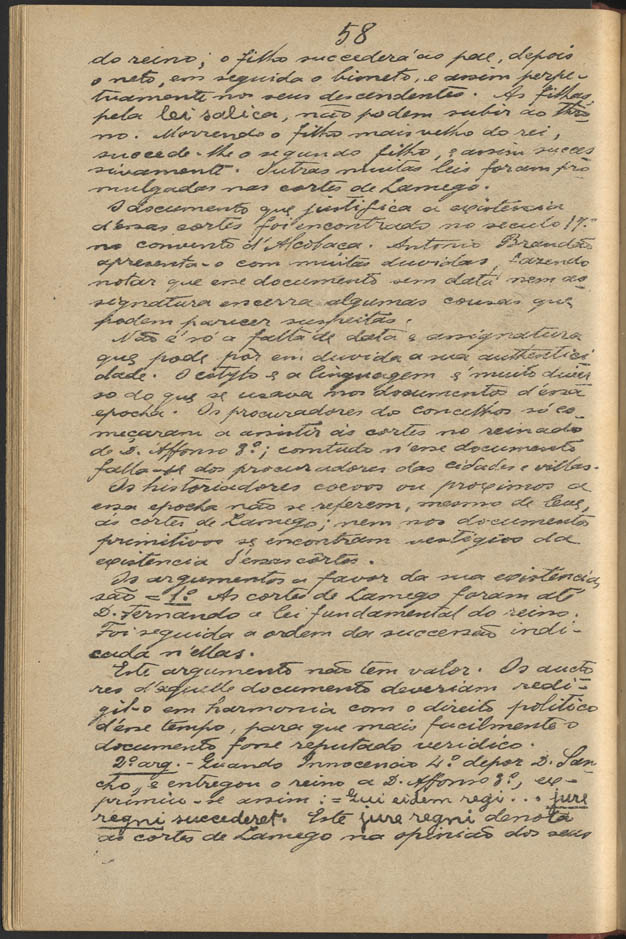 58
do reino; o filho succederá ao pae, depois
o neto, em seguida o bisneto, e assim perpe-
tuamente nos seus descendentes. As filhas,
pela lei salica, não podem subir ao thro
no. Morrendo o filho mais velho do rei,
succede-lhe o segundo filho, e assim succes
sivamente. Outras muitas leis foram pro
mulgadas nas cortes de Lamego.
O documento que justifica a existencia
d'essas cortes foi encontrado no seculo 17.º
no convento d'Alcobaça. Antonio Brandão
apresenta-o com muitas duvidas, fazendo
notar que esse documento sem data nem as
signatura encerra algumas cousas que
podem parecer suspeitas.
Não é só a falta de data e assignatura
que pode por em duvida a sua authentici
dade. O estylo e a linguagem é muito diver
so do que se usava nos documentos d'essa
epocha. Os procuradores do concelhos só co-
meçaram a assistir ás cortes no reinado
de D. Affonso 3.º; comtudo n'esse documento
falla-se dos procuradores das cidades e villas.
Os historiadores coevos ou proximos a
essa epocha não se referem, mesmo de leve,
ás cortes de Lamego; nem nos documentos
primitivos se encontram vestigios da
existencia d'essas côrtes.
Os argumentos a favor da sua existencia
são = 1.º As cortes de Lamego foram até
D. Fernando a lei fundamental do reino.
Foi seguida a ordem da successão indi-
cada n'ellas.
Este argumento não tem valor. Os aucto
res d'aquelle documento deveriam redi-
gil-o em harmonia com o direito politico
d'esse tempo, para que mais facilmente o
documento fosse reputado veridico.
2.º arg. - Quando Innocencio 4.º depor D. San
cho, e entregou o reino a D. Affonso 3.º, ex-
primiu-se assim: = Qui eidem regi... jure
regni succederet. Este jure regni denota
as cortes de Lamego na opinião dos seus